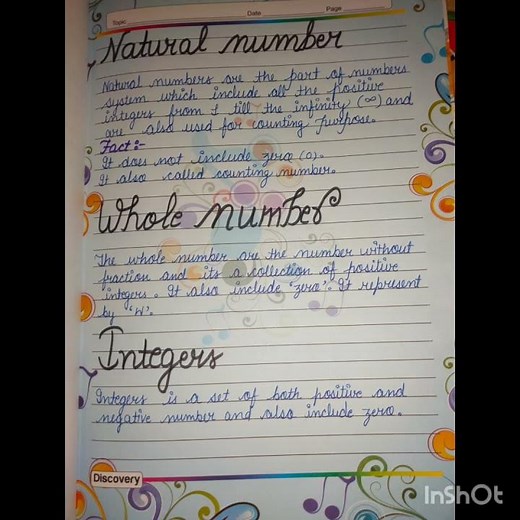 Topic Date Page
Natural number
Natural numbers are the part of numbers
system which include all the positive
integers from 1 till the infinity (∞) and
are also used for counting purpose.
Fact :-
It does not include zero (0).
It also called counting number.
Whole number
The whole number are the number without
fraction and its a collection of positive
integers. It also include 'zero'. It represent
by 'W'.
Integers
Integers is a set of both positive and
negative number and also include zero.
Discovery
InShOt